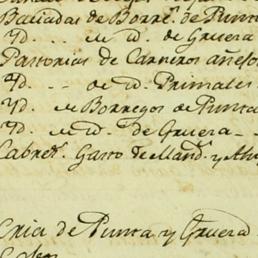 Baciadas de Borre.s de Punta
Yd. . . . de id. de Gruera
Pastorias de Carneros añejos
Yd. . . . de id. Primales
Yd. de Borregos de Punta
Yd. de id. de Gruera
Cabre.s Gasto de
Cria de Punta y Gruera